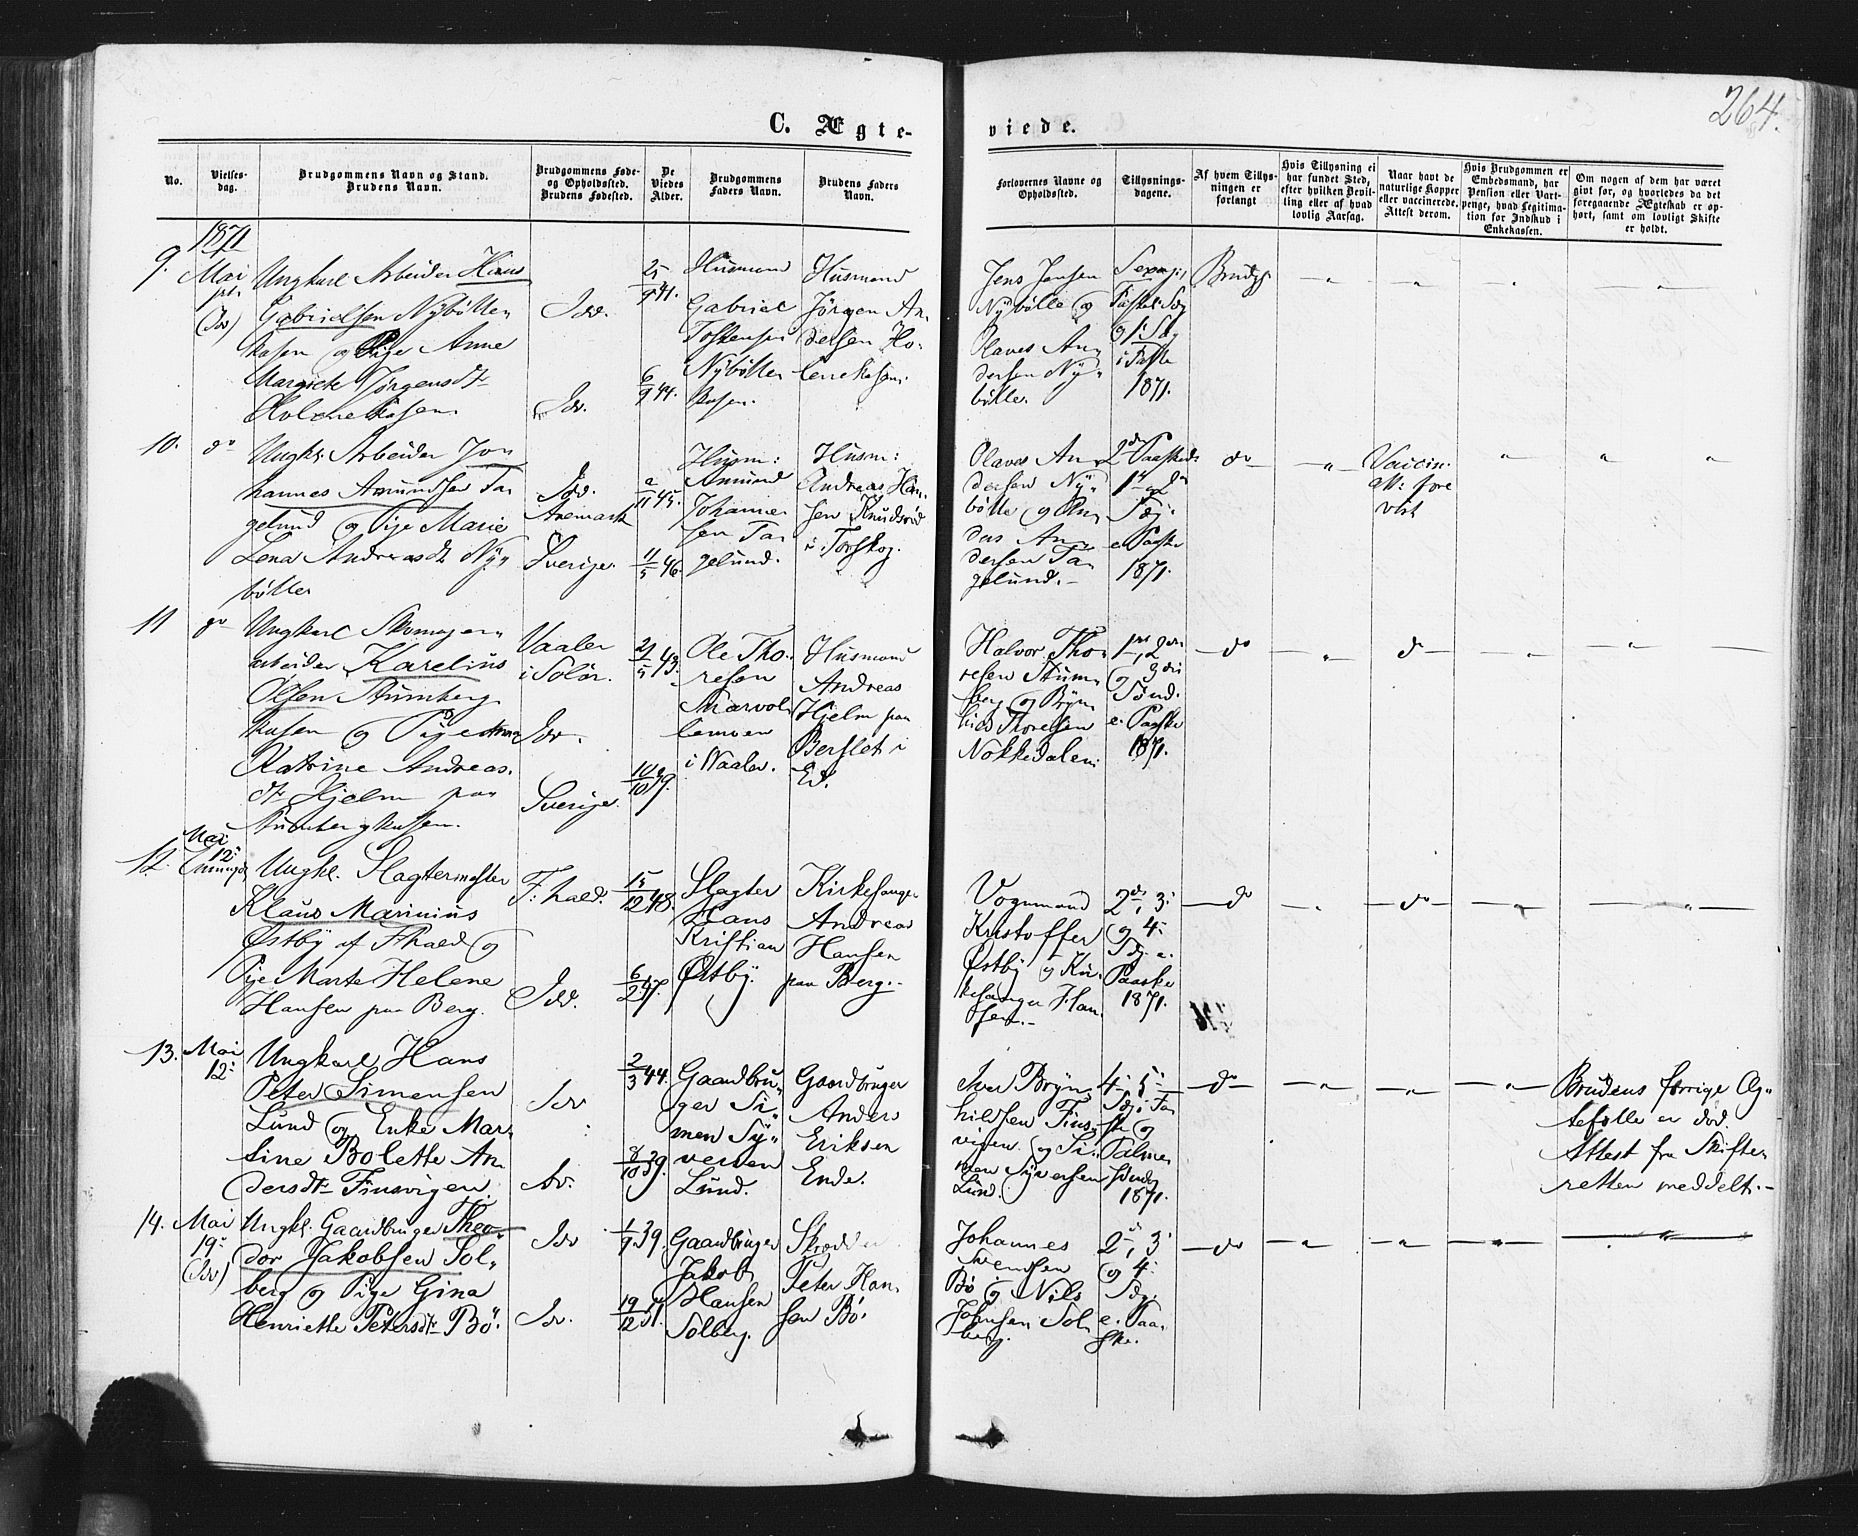 264.
C. Ægte-
viede.
No.
Vielses-
dag.
Brudgommens Navn og Stand.
Brudens Navn.
Brudgommens Føde-
og Opholdssted.
Brudens Fødested.
De
Viedes
Alder.
Brudgommens
Faders Navn.
Brudens Faders
Navn.
Forlovernes Navne og
Opholdssted.
Tillysnings-
dagene.
Af hvem Tillys-
ningen er
forlangt
Hvis Tillysning ei
har fundet Sted,
efter hvilken Bevil-
ling eller af hvad
lovlig Aarsag.
Naar havt de
naturlige Kopper
eller vaccinerede.
Attest derom.
Hvis Brudgommen er
Embedsmand, har
Pension eller Vart-
penge, hvad Legitima-
tion for Indskud i
Enkekassen.
Om nogen af dem har været
givt før, og hvorledes da det
foregaaende Ægteskab er op-
hørt, samt om lovligt Skifte
er holdt.
1871
9.
Mai
(Idd)
Ungkarl Arbeider Hans
Gabrielsen Nybølle-
kasen og Pige Anne
Jørgensdtr
Idd.
Idd.
25/9 41.
6/9 44.
Husmand
Gabriel
Nybølle-
kasen.
Husmand
Jørgen An-
dersen Ho-
lenekasen.
Jens Jensen
Nybølle og
Olaves An-
dersen Ny-
bølle.
i Faste
1871.
Brudg.
10.
do
Ungk. Arbeider Jo-
hannes Amundsen Ta-
gelund og Pige Marie
Lena Andreasdt Ny-
bølle
Idd.
Aremark
Sverige.
11/5 46.
Husm:
Amund
Johannes-
sen Ta-
gelund.
Husm:
Andreas Han-
sen Knudsrød
i Torskog.
Olaves An-
dersen Ny-
bølle og An-
ders An-
dersen Ta-
gelund.-
2den Paasked.
1ste og 2den
Sdg.
e. Paaske
1871.
do
Vaccin.
att: fore
vist
11
do
Ungkarl Skomager-
arbeider Karelius
Olsen Stumberg-
kasen og Pige Anna
Katrine Andreas-
dtr Hjelm paa
Stumbergkasen.
Vaaler
i Solør.
Idd.
Sverige.
21/5 43.
10/10 39.
Ole Tho-
resen
i Vaaler.
Husmand
Andreas
Hjelm paa
Berslet i
Ed.
Halvor Tho-
resen Stum-
berg og Bryn-
hild Thoresen
Nokkedalen
1ste, 2den
og 3die
Sønd.
e. Paaske
1871.
do
do
12.
Mai
12:
Ungkl. Slagtermester
Klaus Marinius
Østby af Fhald og
Pige Marte Helene
Hansen paa Berg.
F: hald.
Idd.
15/12 48.
6/2 47.
Slagter
Hans
Kristian
Østby.
Kirkesanger
Andreas
Hansen
paa Berg.-
Vognmand
Kristoffer
Østby og Kir-
kesanger Han-
sen.-
2den, 3:
og 4:
Sdg. e.
Paaske
1871.
do
do
13.
Mai
12:
Ungkarl Hans
Peter Simensen
Lund og Enke Mar-
tine Bolette An-
dersdtr Finsvigen.
Idd
Idd.
2/3 44.
8/10 39.
Gaardbru-
ger Si-
men Sy-
versen
Lund.
Gaardbruger
Anders
Eriksen
Ende.
Iver Bryn-
hildsen Fins-
vigen og Si-
men Syversen
Lund.
4, 5:
Sdg i Fa-
ste og
Palme-
sønde.
1871.
do
Brudens forrige Æg-
tefælle er død.
Attest fra Skifte-
retten meddelt.-
14.
Mai
19:
(Idd)
Ungkl. Gaardbruger Theo-
dor Jakobsen Sol-
berg og Pige Gina
Henriette Petersdtr Bø.
Idd
Idd.
1/9 39.
Gaardbruger
Jakob
Hansen
Solberg.
Skrædder
Peter Han-
sen Bø.
Johannes
Svensen
Bø og Nils
Johnsen Sol-
berg.
2den, 3:
og 4:
Sdg.
e. Paa-
ske.
do